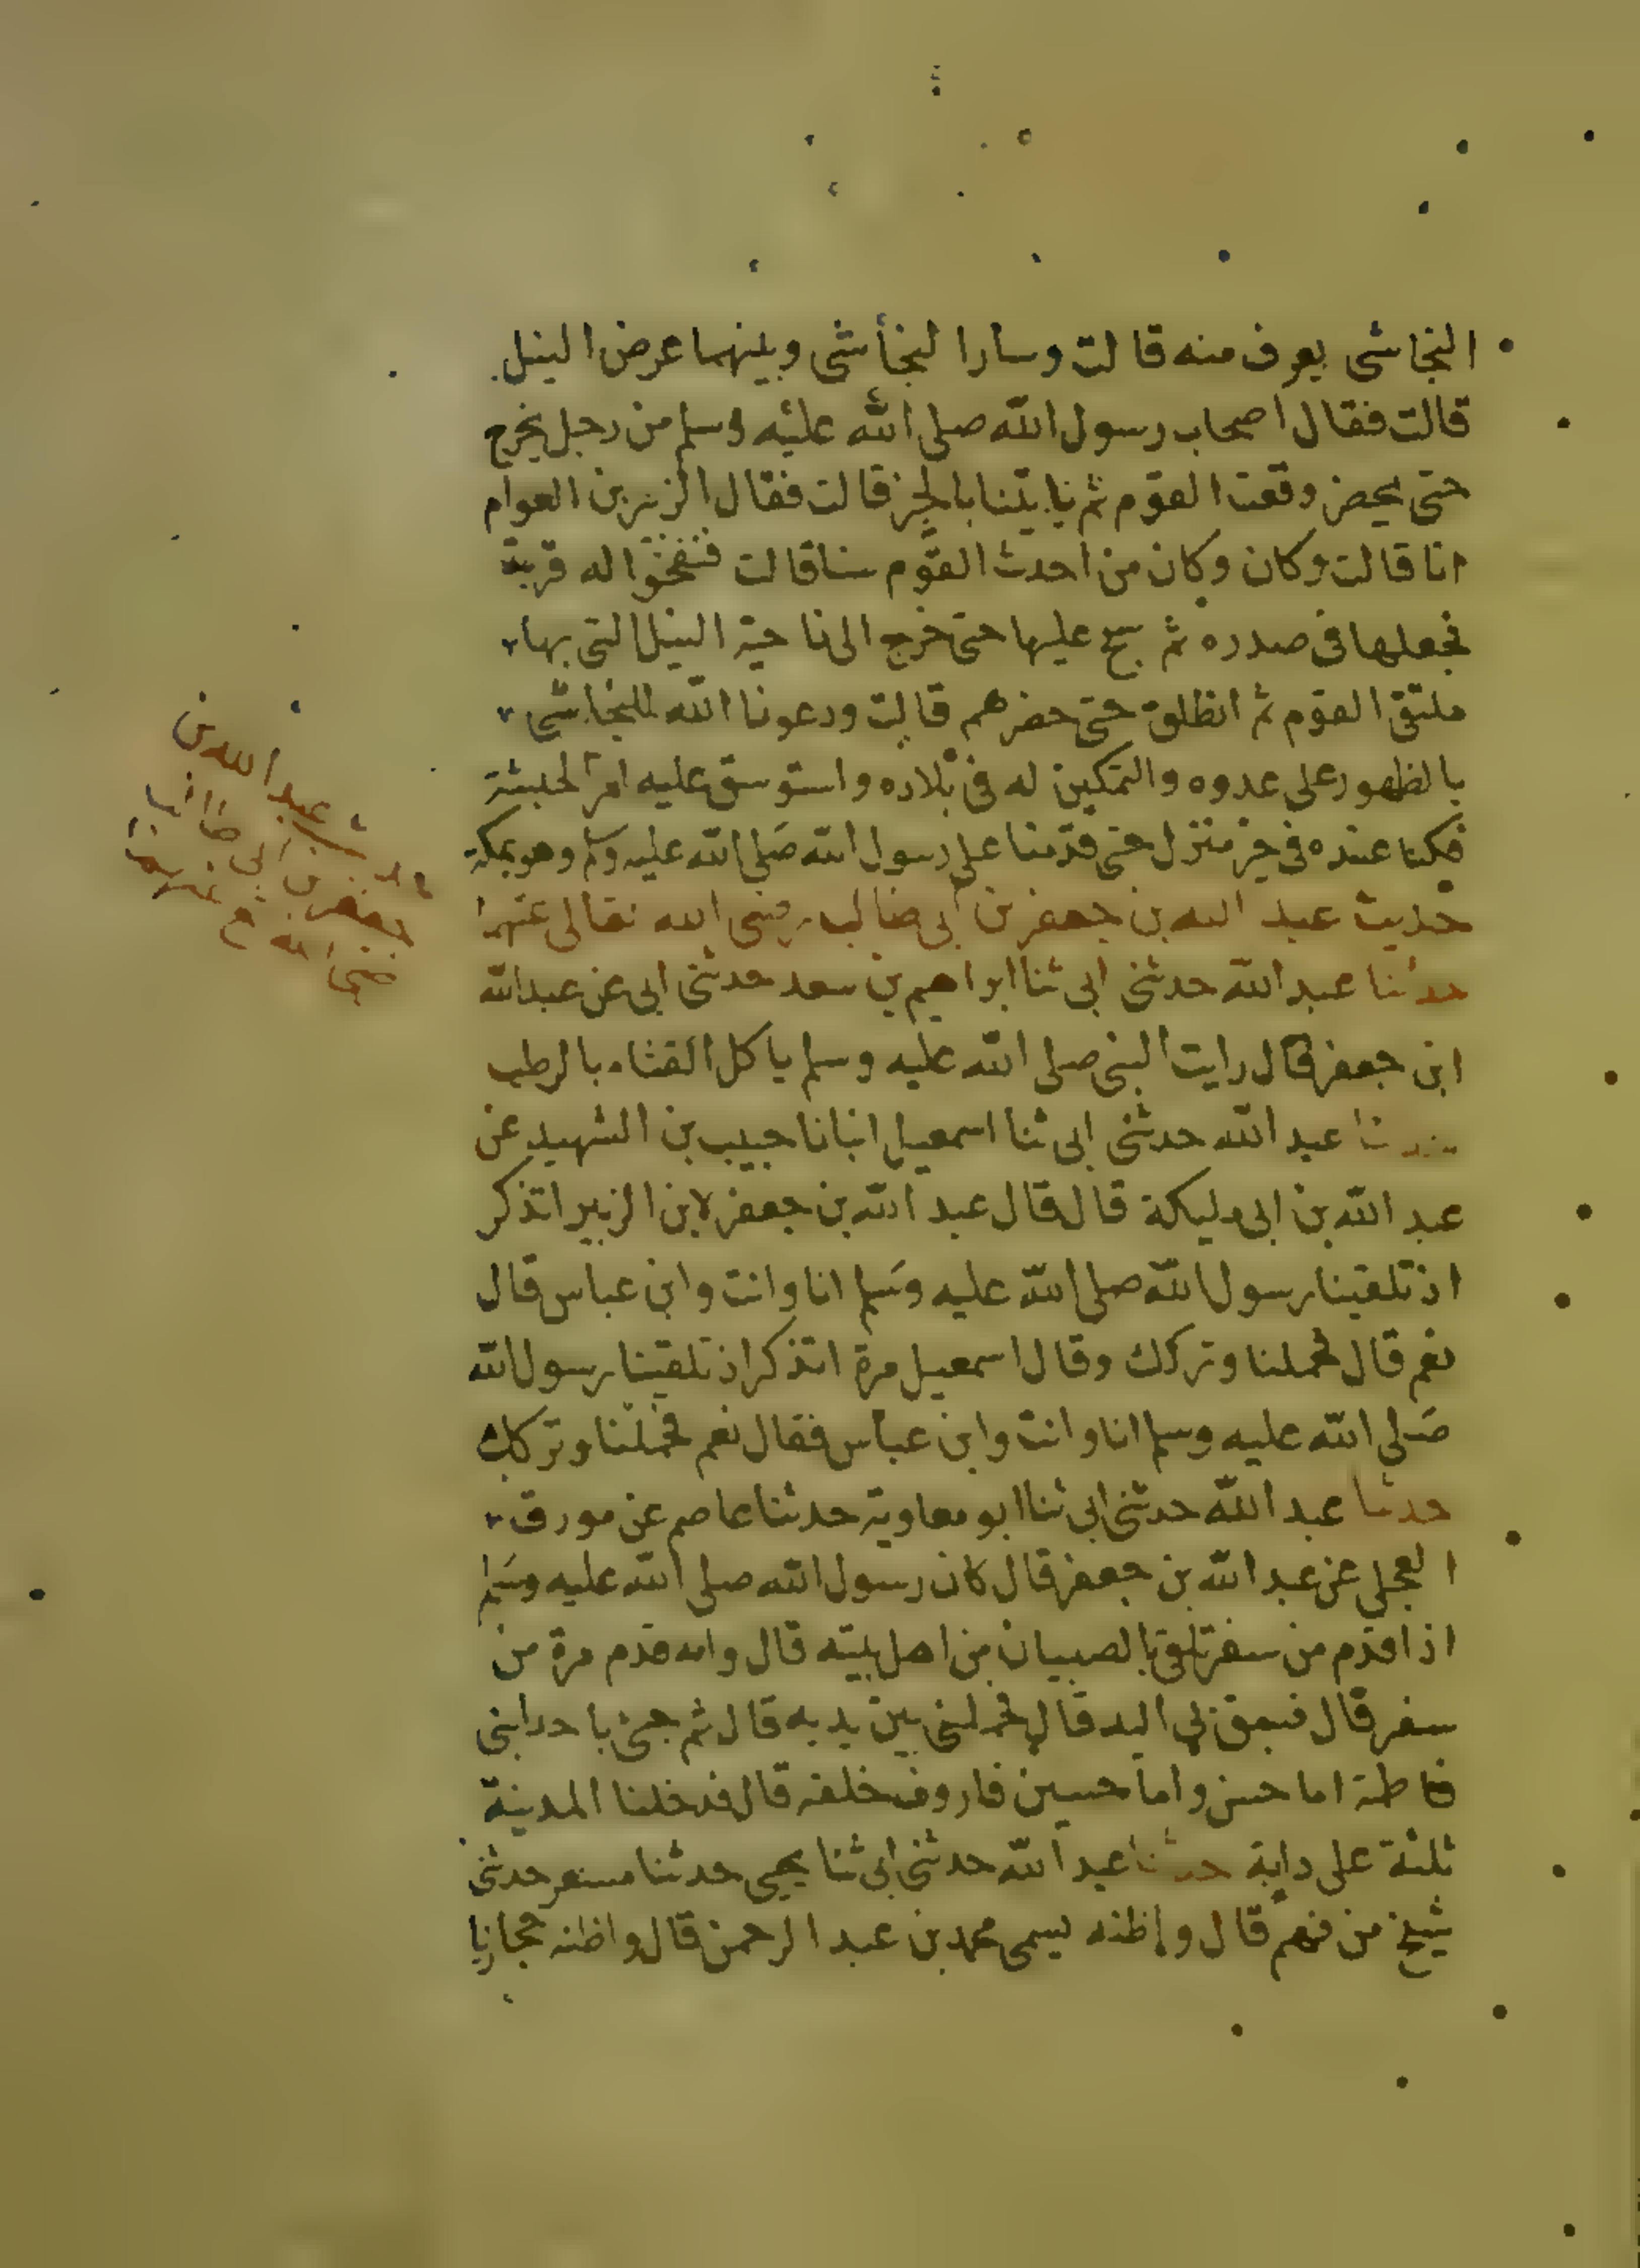 النجاشى يعرف منه قالت وسار النجأشى وبينهما عرض النيل
قالت فقال اصحاب رسول الله صلى الله عليه وسلم من رجل يخرج
حتى يحضر وقعت القوم ثم ياتينا بالخبر قالت فقال الزبير بن العوام
انا قالت وكان وكان من احدث القوم سنا قالت فنفخوا له قربة
فجعلها فى صدره ثم سبح عليها حتى خرج الى ناحية النيل التى بها
ملتقى القوم ثم انطلق حتى حضرهم قالت ودعونا الله للنجاشى
بالظهور على عدوه والتمكين له فى بلاده واستوسق عليه امر الحبشة
فكنا عنده فى خير منزل حتى قدمنا على رسول الله صَلى الله عليه وسلم وهو بمكة
حديث عبد الله بن جعفر بن أبى طالب رضى الله تعالى عنهما
حدثنا عبد الله حدثنى ابى ثنا ابراهيم بن سعد حدثنى ابى عن عبد الله
ابن جعفر قال رايت النبى صلى الله عليه وسلم ياكل القثاء بالرطب
حدثنا عبد الله حدثنى ابى ثنا اسمعيل انبانا حبيب بن الشهيد عن
عبد الله بن ابى مليكة قال قال عبد الله بن جعفر لابن الزبير اتذكر
اذ تلقينا رسول الله صلى الله عليه وسَلم انا وانت وابن عباس قال
نعم قال فحملنا وتركك وقال اسمعيل مرة اتذكر اذ تلقينا رسول الله
صَلى الله عليه وسلم انا وانت وابن عباس فقال نعم فحملنا وتركك
حدثنا عبد الله حدثنى ابى ثنا ابو معاوية حدثنا عاصم عن مورق
العجلى عن عبد الله بن جعفر قال كان رسول الله صلى الله عليه وسَلم
اذا قدم من سفر تلقى بالصبيان من اهل بيته قال وانه قدم مرة من
سفر قال فسبق بى اليه قال فحملنى بين يديه قال ثم جئ باحد ابنى
فاطمة اما حسن واما حسين فاردفه خلفه قال فدخلنا المدينة
ثلثة على دابة حدثنا عبد الله حدثنى ابى ثنا يحيى حدثنا مسعر حدثنى
شيخ من فهم قال واظنه يسمى محمد بن عبد الرحمن قال واظنه حجازيا
عبد الله بن
جعفر بن ابى طالب
رضى الله عنهما